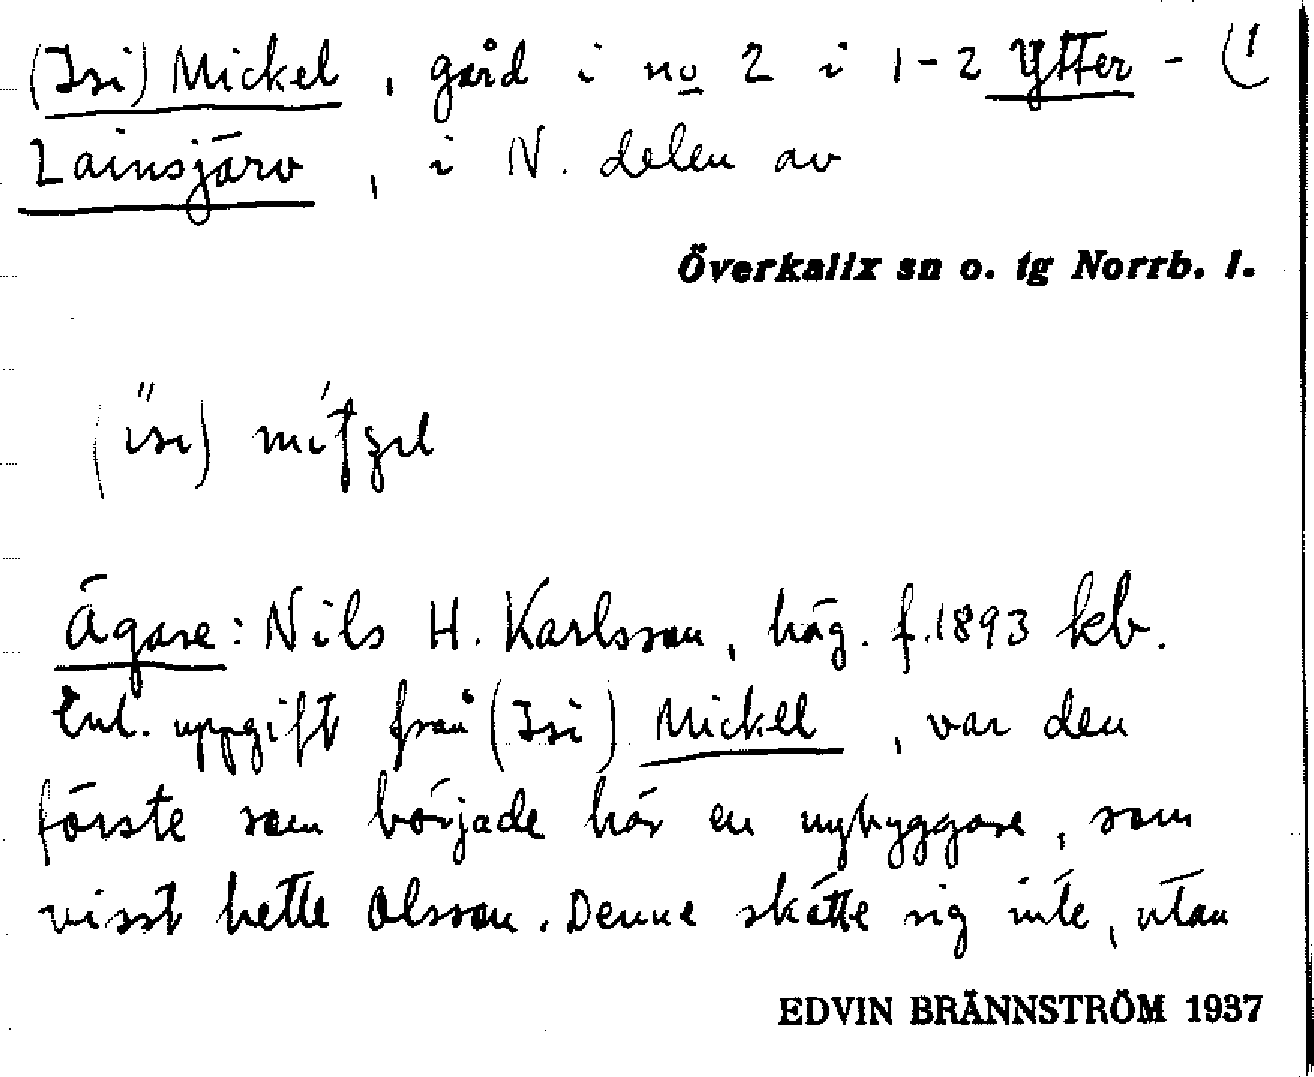 (Isi) Mickel, gård i no 2 i 1-2 Ytter- (1
Lainsjärv, i N. delen av
Överkalix sn o. tg Norrb. l.
(isi)
Ägare: Nils H. Karlsson, häg. f. 1893 kb.
Enl. uppgift från (Isi) Mickel, var den
förste som började här en nybyggare, som
visst hette Olsson. Denne skötte sig inte, utan
EDVIN BRÄNNSTRÖM 1937